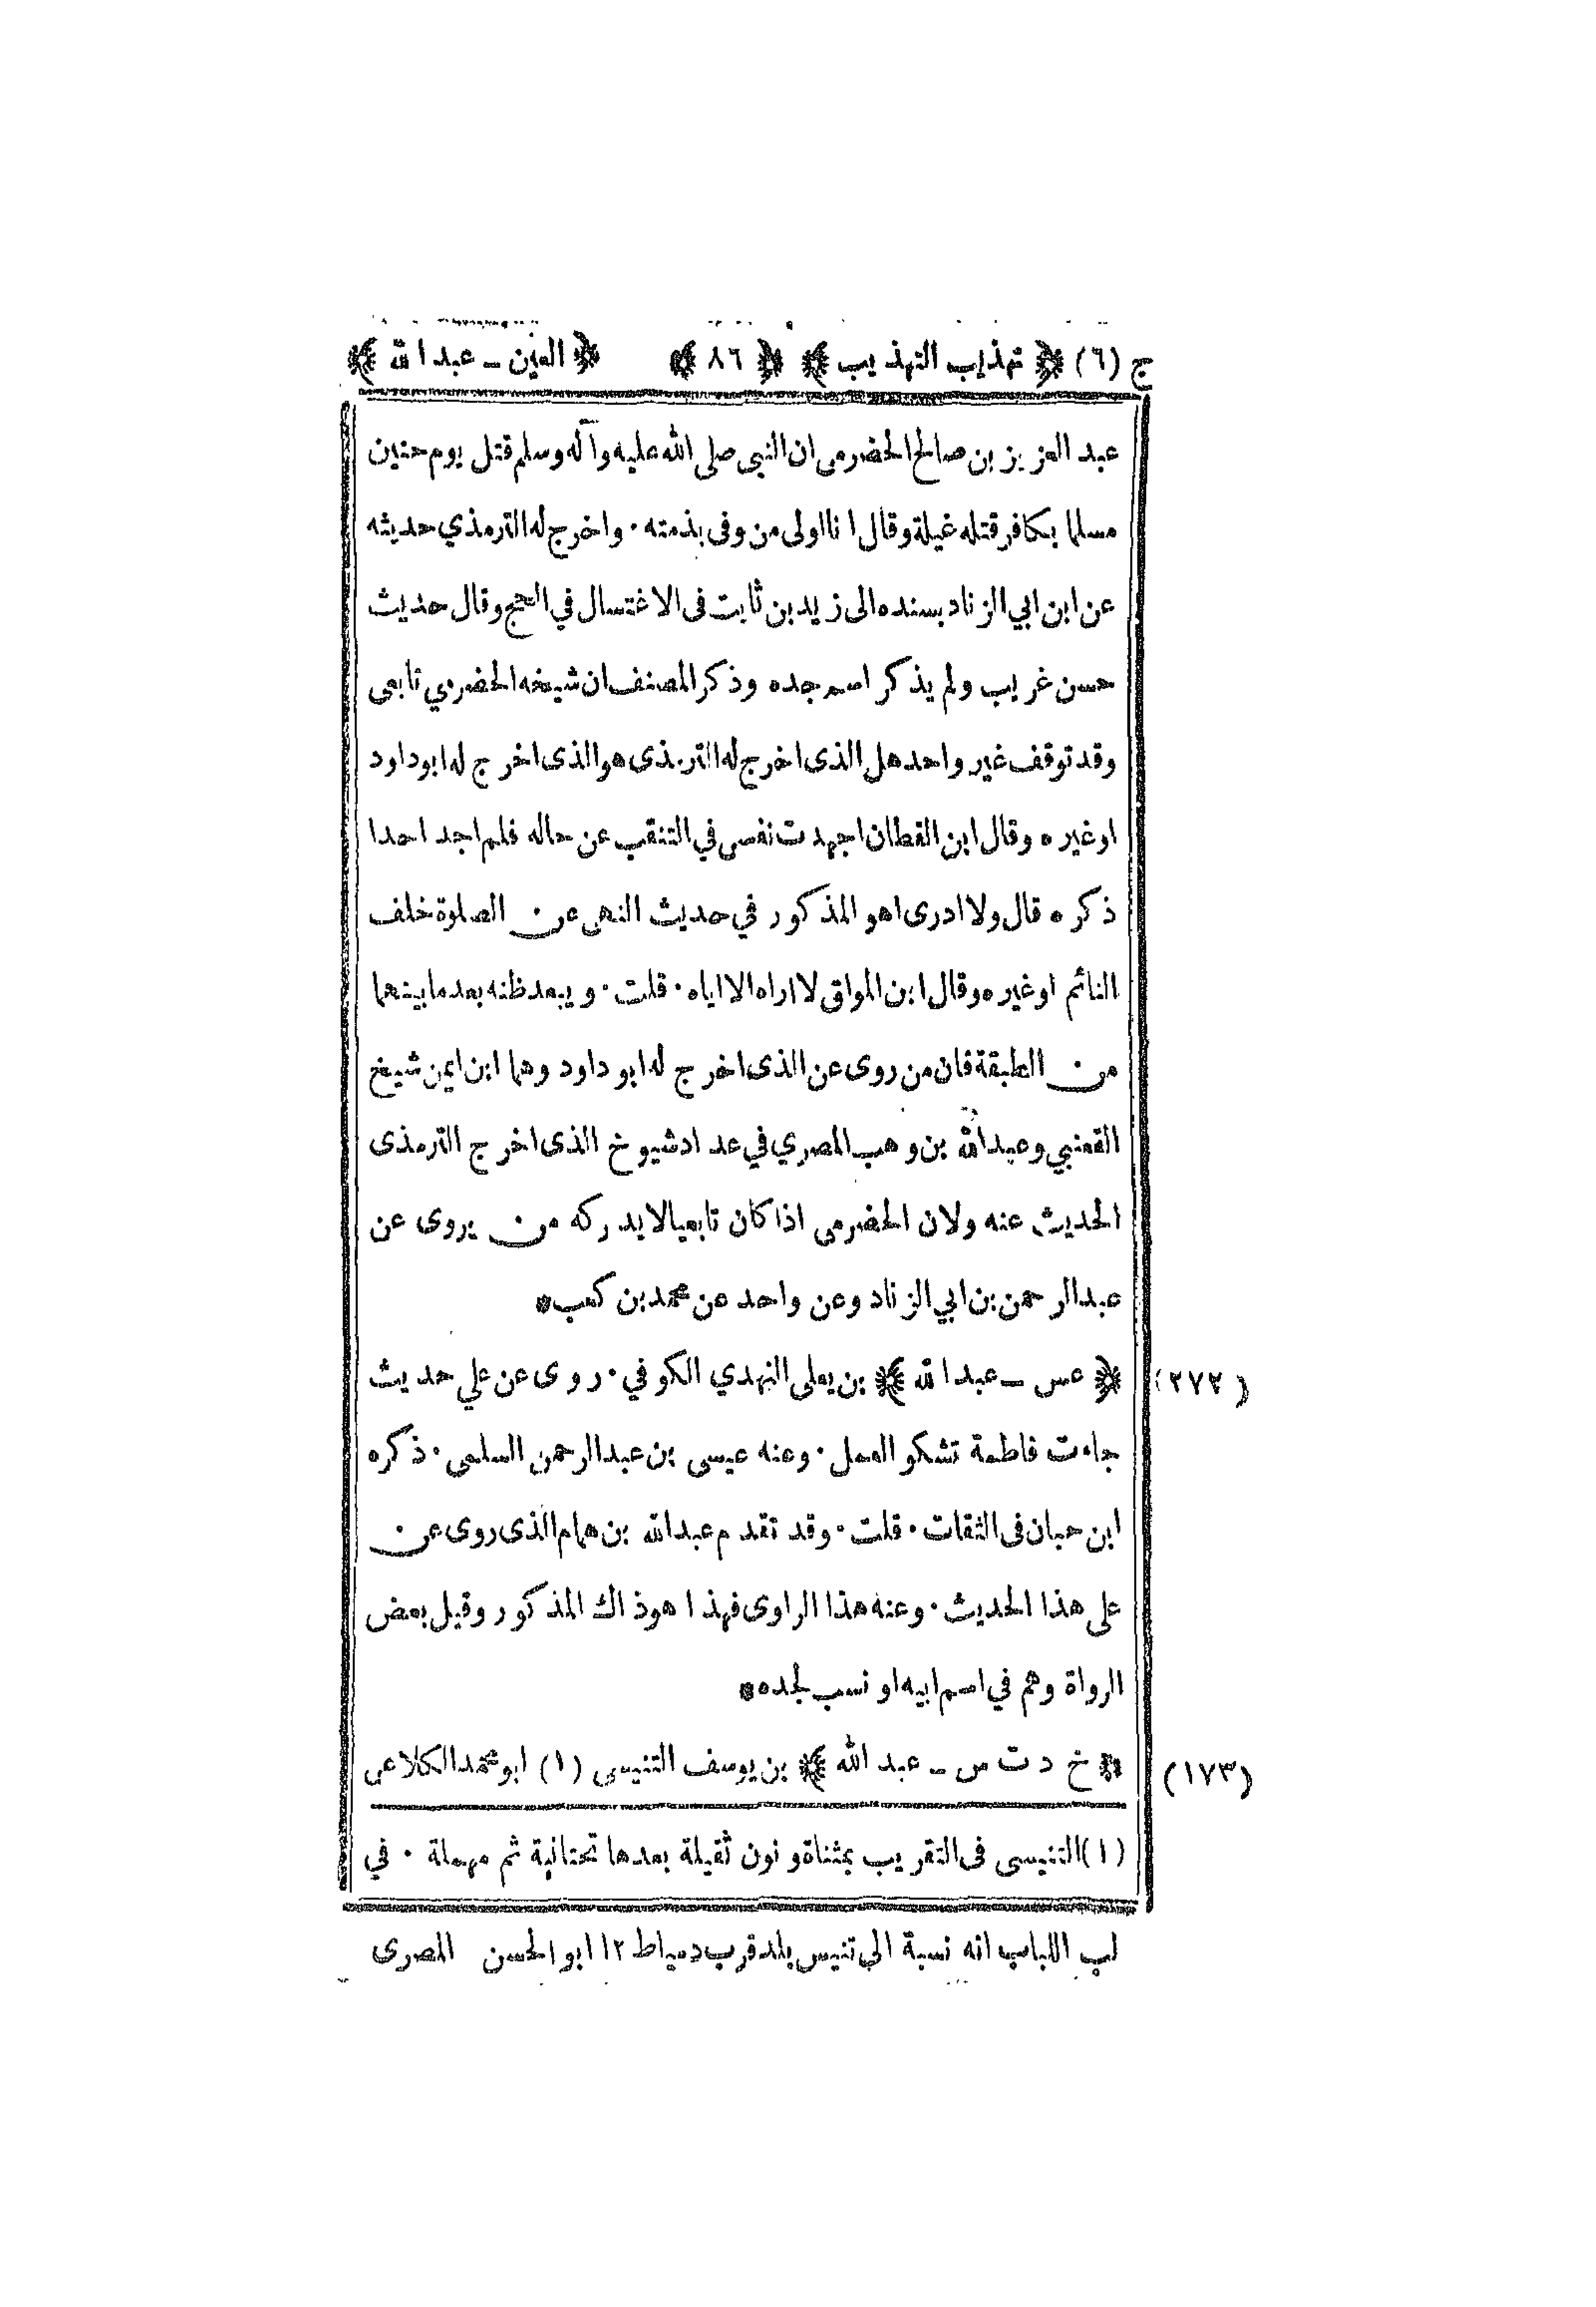 ج (٦) ﴿ تهذيب التهذيب ﴾ ﴿ ٨٦ ﴾ ﴿ العين ـ عبد الله ﴾
عبد العزيز بن صالح الحضرمى ان النبى صلى الله عليه وآله وسلم قتل يوم حنين
مسلما بكافر قتله غيلة وقال انا اولى من وفى بذمته ٠ واخرج له الترمذي حديثه
عن ابن ابي الزناد بسنده الى زيد بن ثابت فى الاغتسال في الحج وقال حديث
حسن غريب ولم يذكر اسم جده وذكر المصنف ان شيخه الحضرمي تابعى
وقد توقف غير واحد هل الذى اخرج له الترمذى هو الذى اخرج له ابو داود
او غيره وقال ابن القطان اجهدت نفسى في التنقب عن حاله فلم اجد احدا
ذكره قال ولا ادرى اهو المذكور في حديث النهى عن الصلوة خلف
النائم او غيره وقال ابن المواق لا اراه الا اياه ٠ قلت ٠ ويبعد ظنه بعد ما بينهما
من الطبقة فان من روى عن الذى اخرج له ابو داود وهما ابن ايمن شيخ
القعنبي وعبد الله بن وهب المصري في عداد شيوخ الذى اخرج الترمذى
الحديث عنه ولان الحضرمى اذا كان تابعيا لا يدركه من يروى عن
عبد الرحمن بن ابي الزناد وعن واحد عن محمد بن كعب *
(٢٧٢) ﴿ عس ـ عبد الله ﴾ بن يعلى النهدي الكوفي ٠ روى عن علي حديث
جاءت فاطمة تشكو العمل ٠ وعنه عيسى بن عبد الرحمن السلمى ٠ ذكره
ابن حبان فى الثقات ٠ قلت ٠ وقد تقدم عبد الله بن همام الذى روى عن
على هذا الحديث ٠ وعنه هذا الراوى فهذا هو ذاك المذكور وقيل بعض
الرواة وهم في اسم ابيه او نسب لجده *
(١٧٣) ﴿ خ د ت س ـ عبد الله ﴾ بن يوسف التنيسى (١) ابو محمد الكلاعى
(١) التنيسى فى التقريب بمثناة ونون ثقيلة بعدها تحتانية ثم مهملة ٠ في
لب اللباب انه نسبة الي تنيس بلد قرب دمياط ١٢ ابو الحسن المصرى